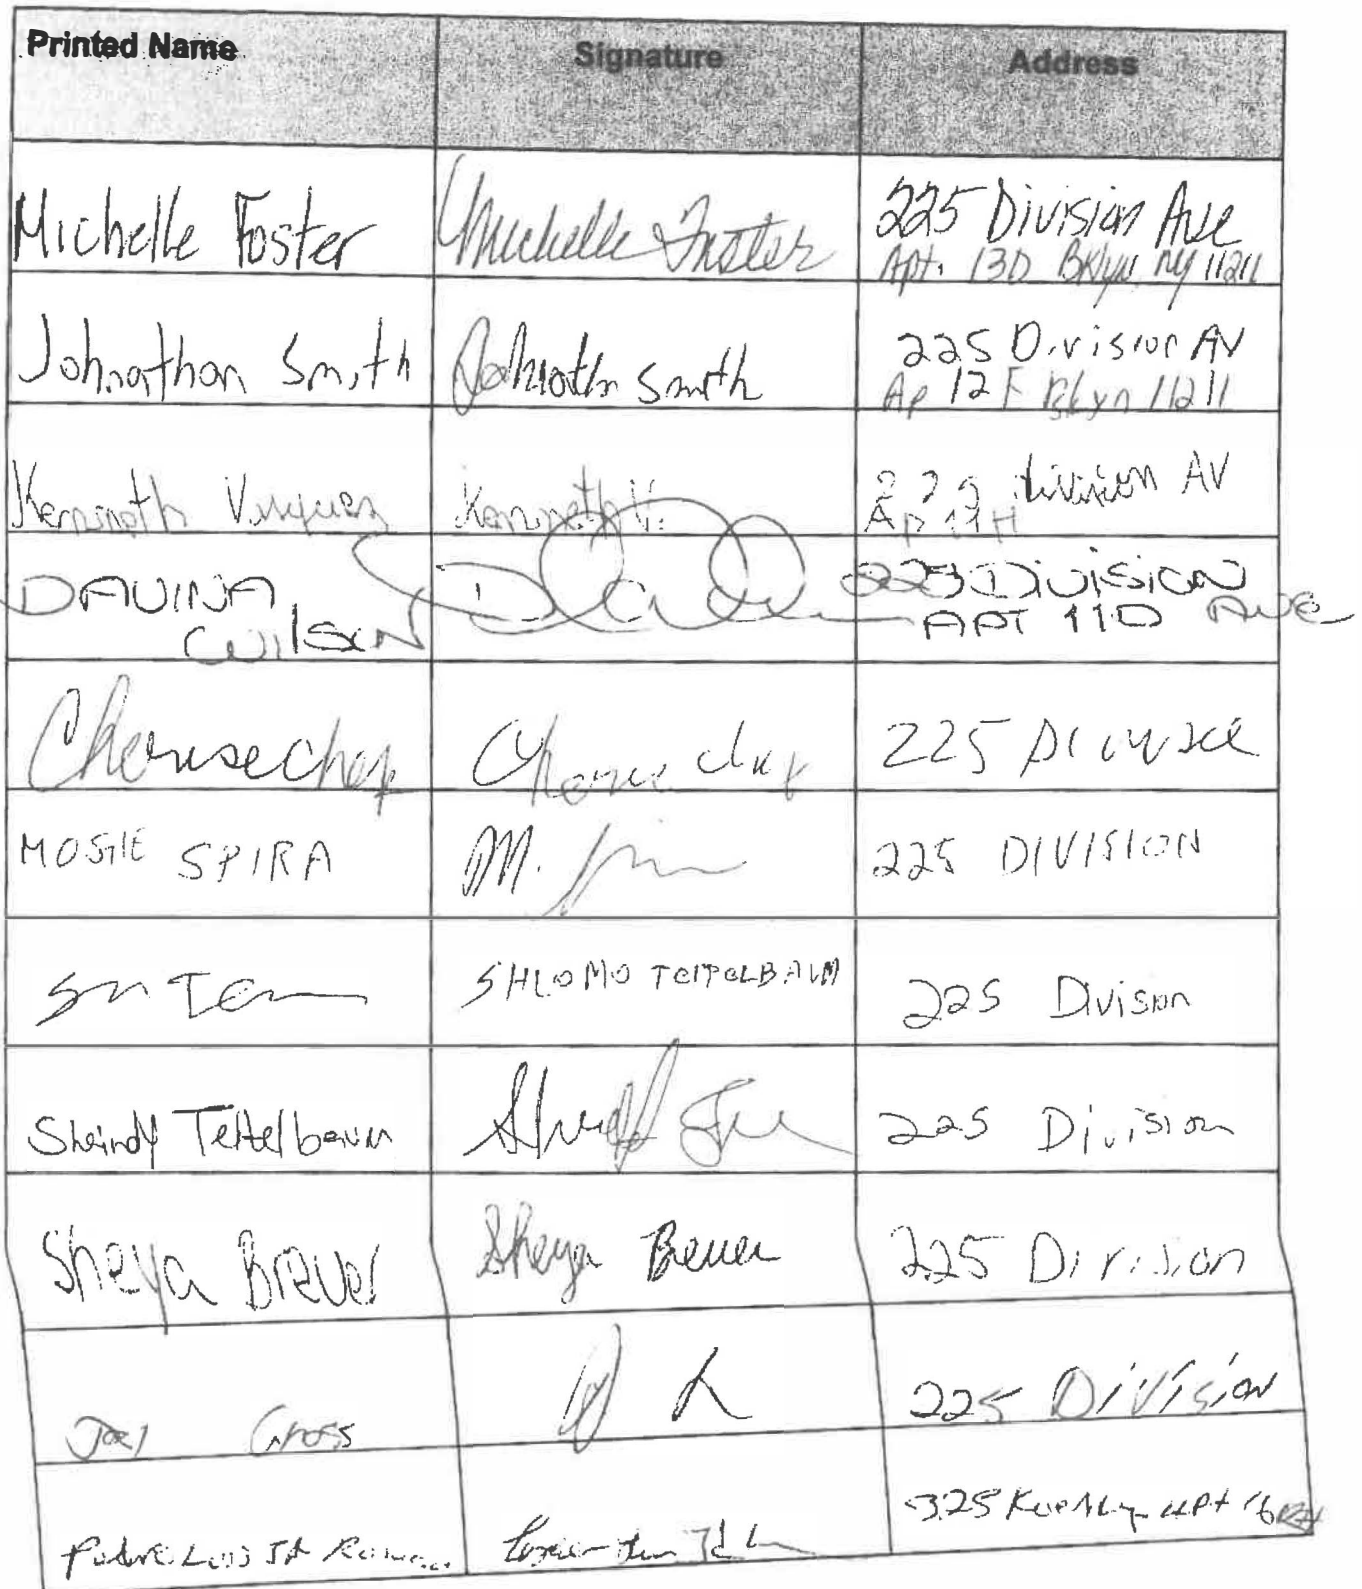 Printed Name Signature Address
Michelle Foster Michelle Foster 225 Division Ave
Apt. 13D Bklyn, NY 11211
Johnathan Smith Johnath Smith 225 Division AV
Ap 12 F Bklyn 11211
Kenneth Kenneth V. division AV
Ap 11H
DAVINA 225 DIVISION
Wilson APT 11D AVE
225
MOSHE SPIRA M. 225 DIVISION
SHLOMO TEITELBAUM 225 Division
Sheindy Teitelbaum 225 Division
Sheya Brever Sheya Breuer 225 Division
Joel Gross 225 Division
325 APt